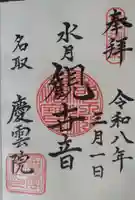 奉拝
令和八年
三月一日
水月
観世音
名取
慶雲院